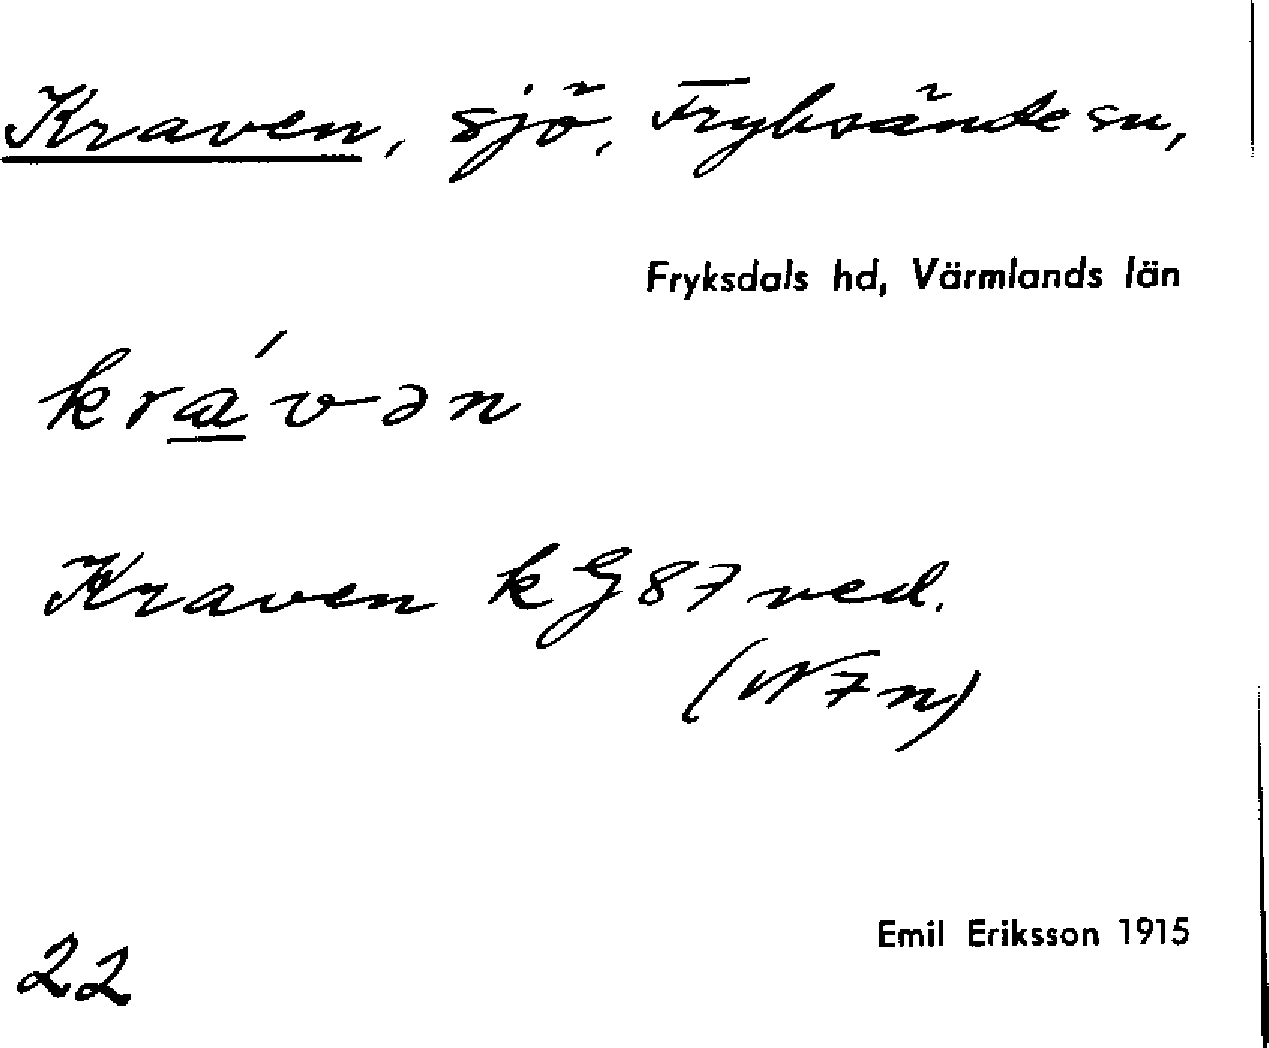 Kraven, sjö, Fryksände sn,
Fryksdals hd, Värmlands län
krávən
Kraven k G 87 ned.
(N 7 n)
Emil Eriksson 1915
22